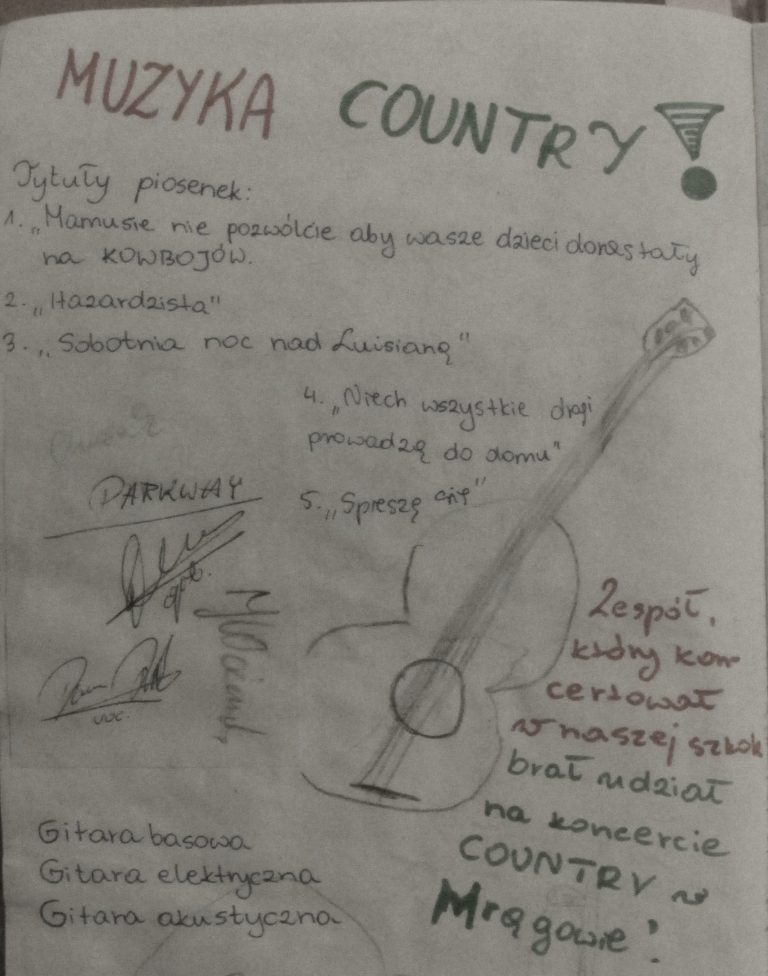 MUZYKA COUNTRY!
Tytuły piosenek:
1. „Mamusie nie pozwólcie aby wasze dzieci dorastały
na KOWBOJÓW.
2. „Hazardzista"
3. „Sobotnia noc nad Luisianą"
4. „Niech wszystkie drogi
prowadzą do domu"
5. „Spieszę się"
PARKWAY
voc.
Gitara basowa
Gitara elektryczna
Gitara akustyczna
Zespół,
który kon-
certował
w naszej szkole
brał udział
na koncercie
COUNTRY w
Mrągowie!